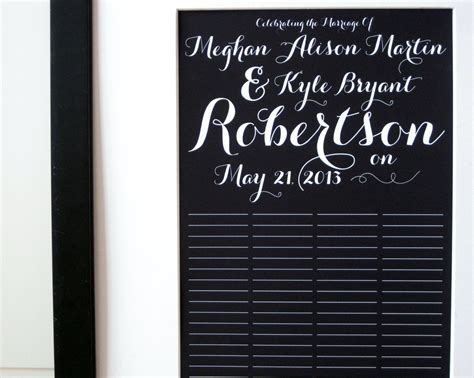 Celebrating the Marriage Of
Meghan Alison Martin
& Kyle Bryant
Robertson
on
May 21, 2013